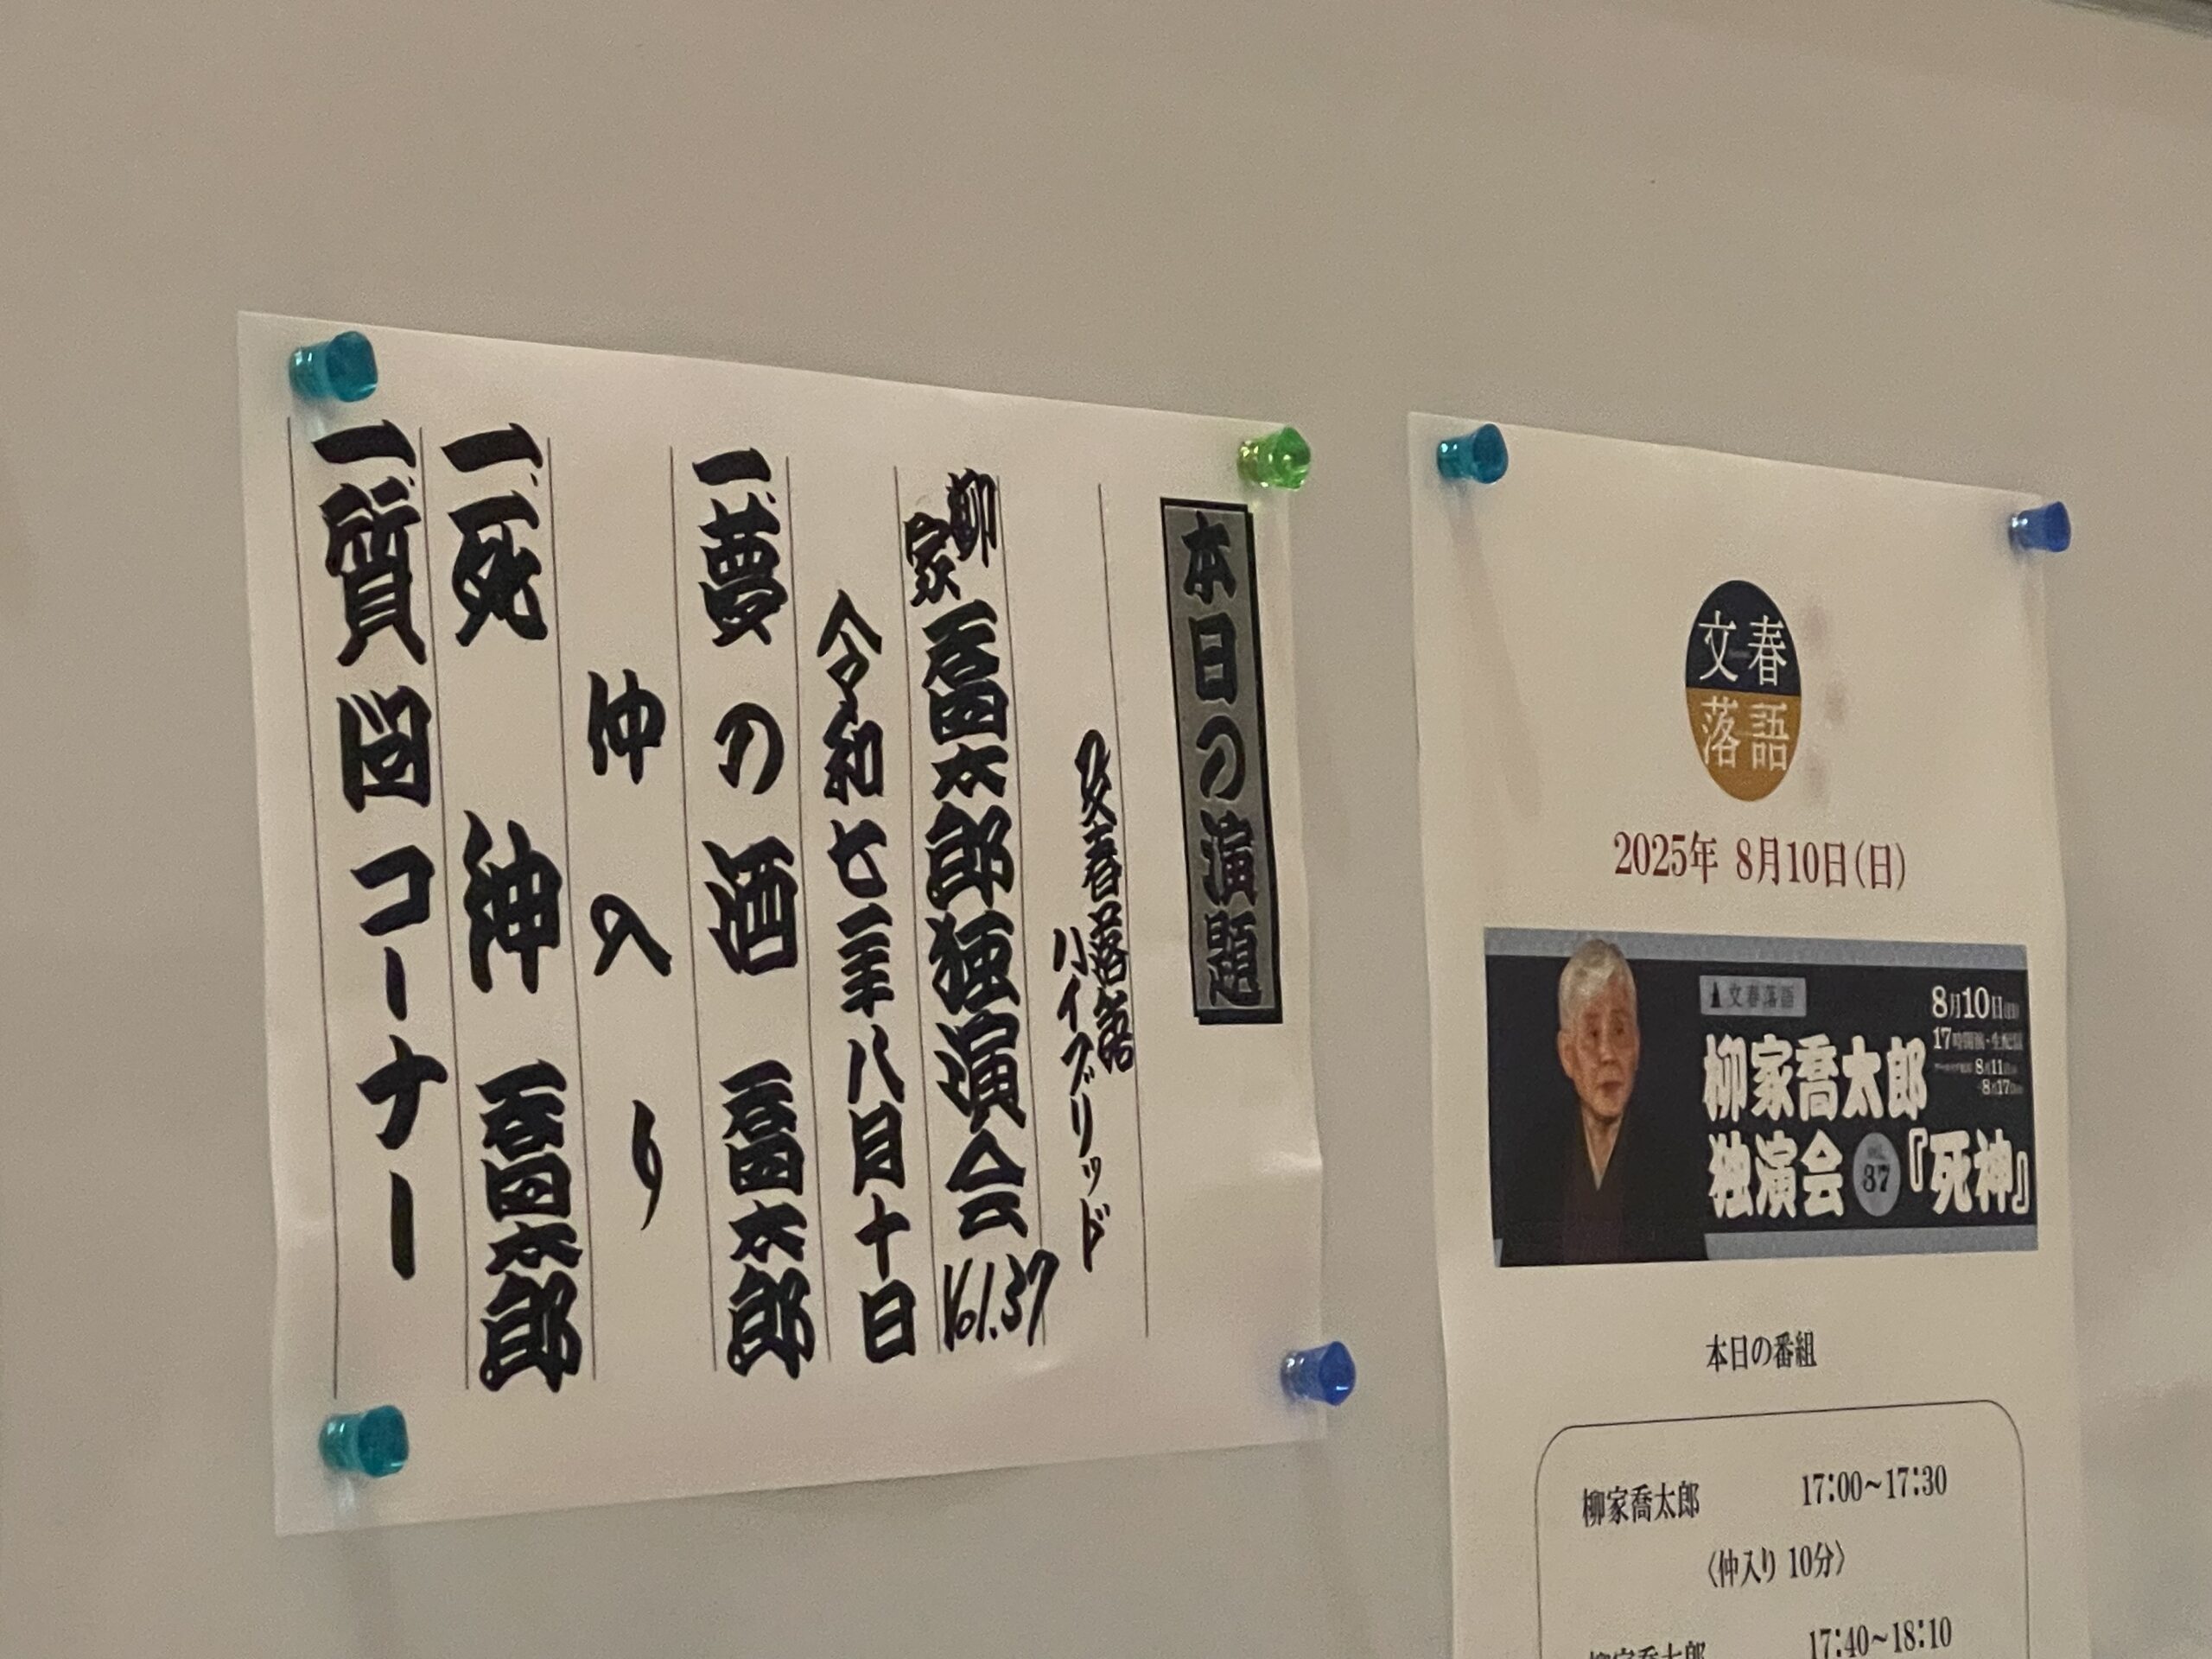 本日の演題
文春落語
ハイブリッド
柳家喬太郎独演会 Vol.37
令和七年八月十日
一、夢の酒 喬太郎
仲入り
一、死神 喬太郎
一、質問コーナー
文春
落語
2025年 8月10日(日)
文春落語
8月10日(日)
17時開演・生配信
8月11日
8月17日
柳家喬太郎
独演会 37 『死神』
本日の番組
柳家喬太郎 17:00~17:30
〈仲入り 10分〉
柳家喬太郎 17:40~18:10